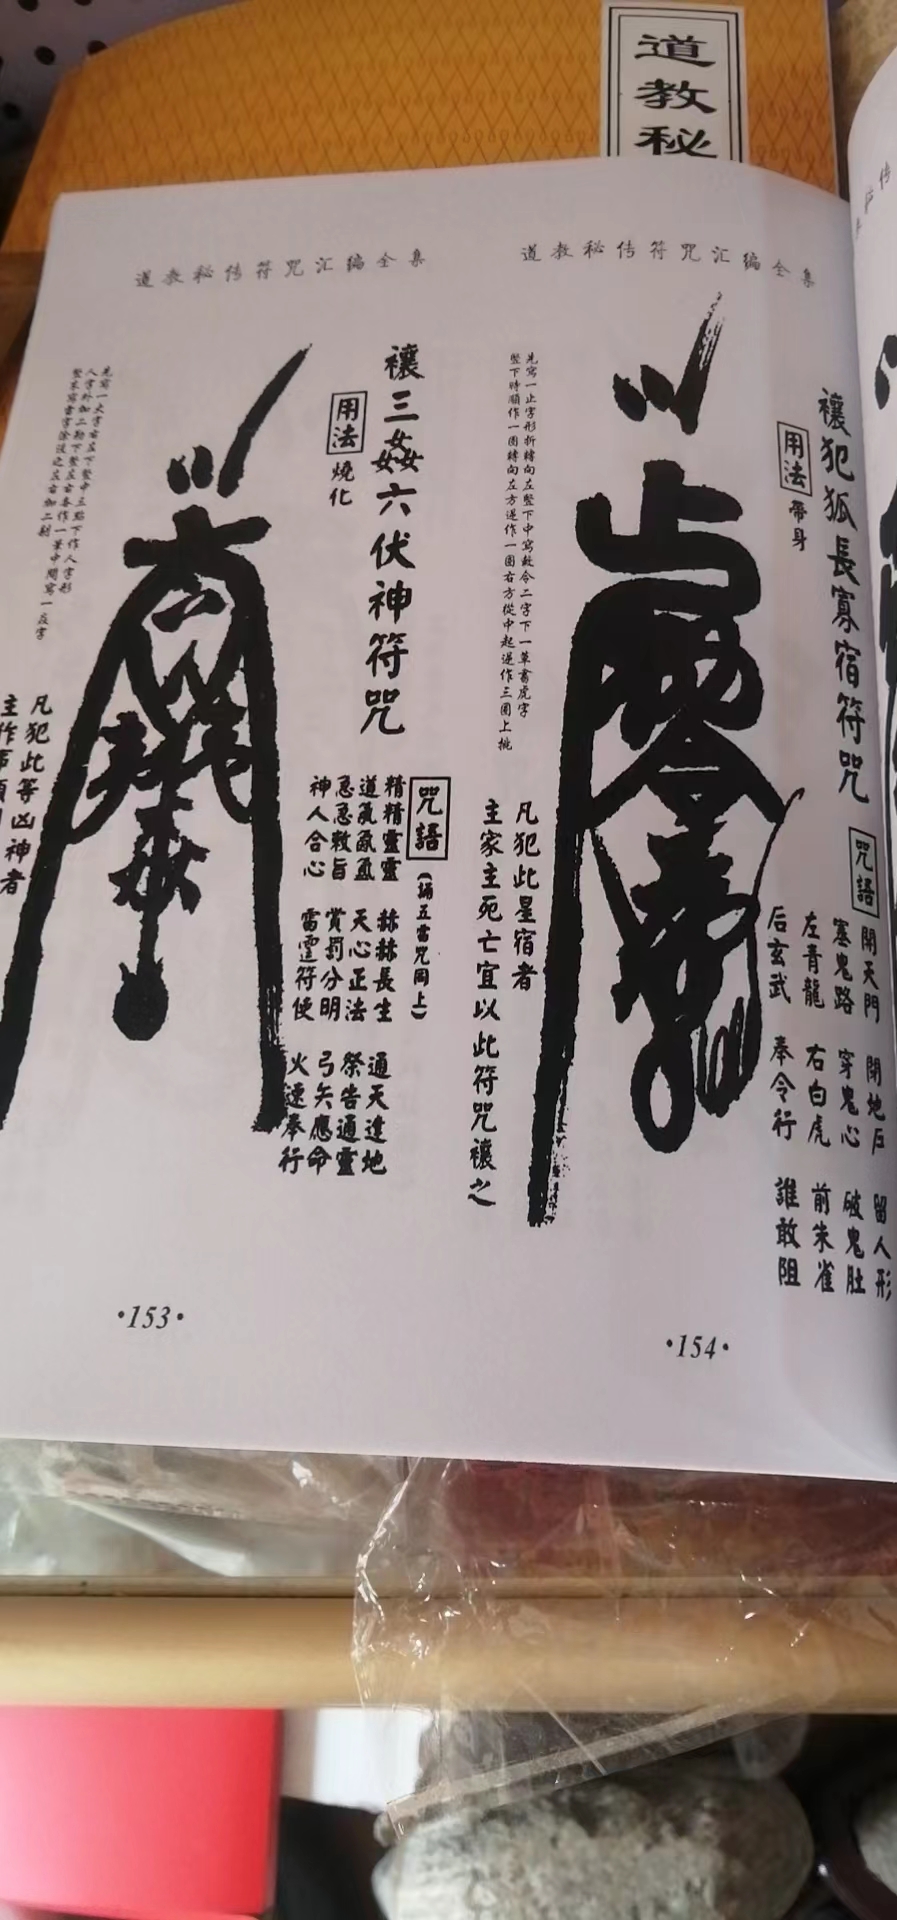 道教秘
道教秘传符咒汇编全集
禳犯狐長寡宿符咒
用法
帶身
咒語
開天門 閉地戶 留人形
塞鬼路 穿鬼心 破鬼肚
左青龍 右白虎 前朱雀
后玄武 奉令行 誰敢阻
先寫一止字形折轉向左豎下中寫敕令二字下一草書虎字
豎下特順作一圈轉向左方逆作一圈右方從中起逆作三圈上挑
凡犯此星宿者
主家主死亡宜以此符咒禳之
·154·
道教秘传符咒汇编全集
禳三姦六伏神符咒
用法
燒化
咒語
(誦五雷咒同上)
精精靈靈 赫赫長生 通天達地
道炁氤氳 天心正法 祭告通靈
急急敕旨 賞罰分明 弓矢應命
神人合心 雷霆符使 火速奉行
凡犯此等凶神者
·153·